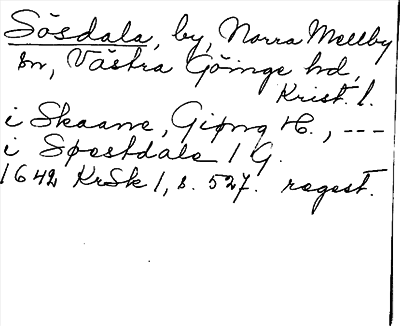 Sösdala, by, Norra Mellby
sn, Västra Göinge hd,
Krist. l.
i Skaane, Giøng H., ---
i Spøstdale 1 G.
1642 KrSk 1, s. 527. regest.